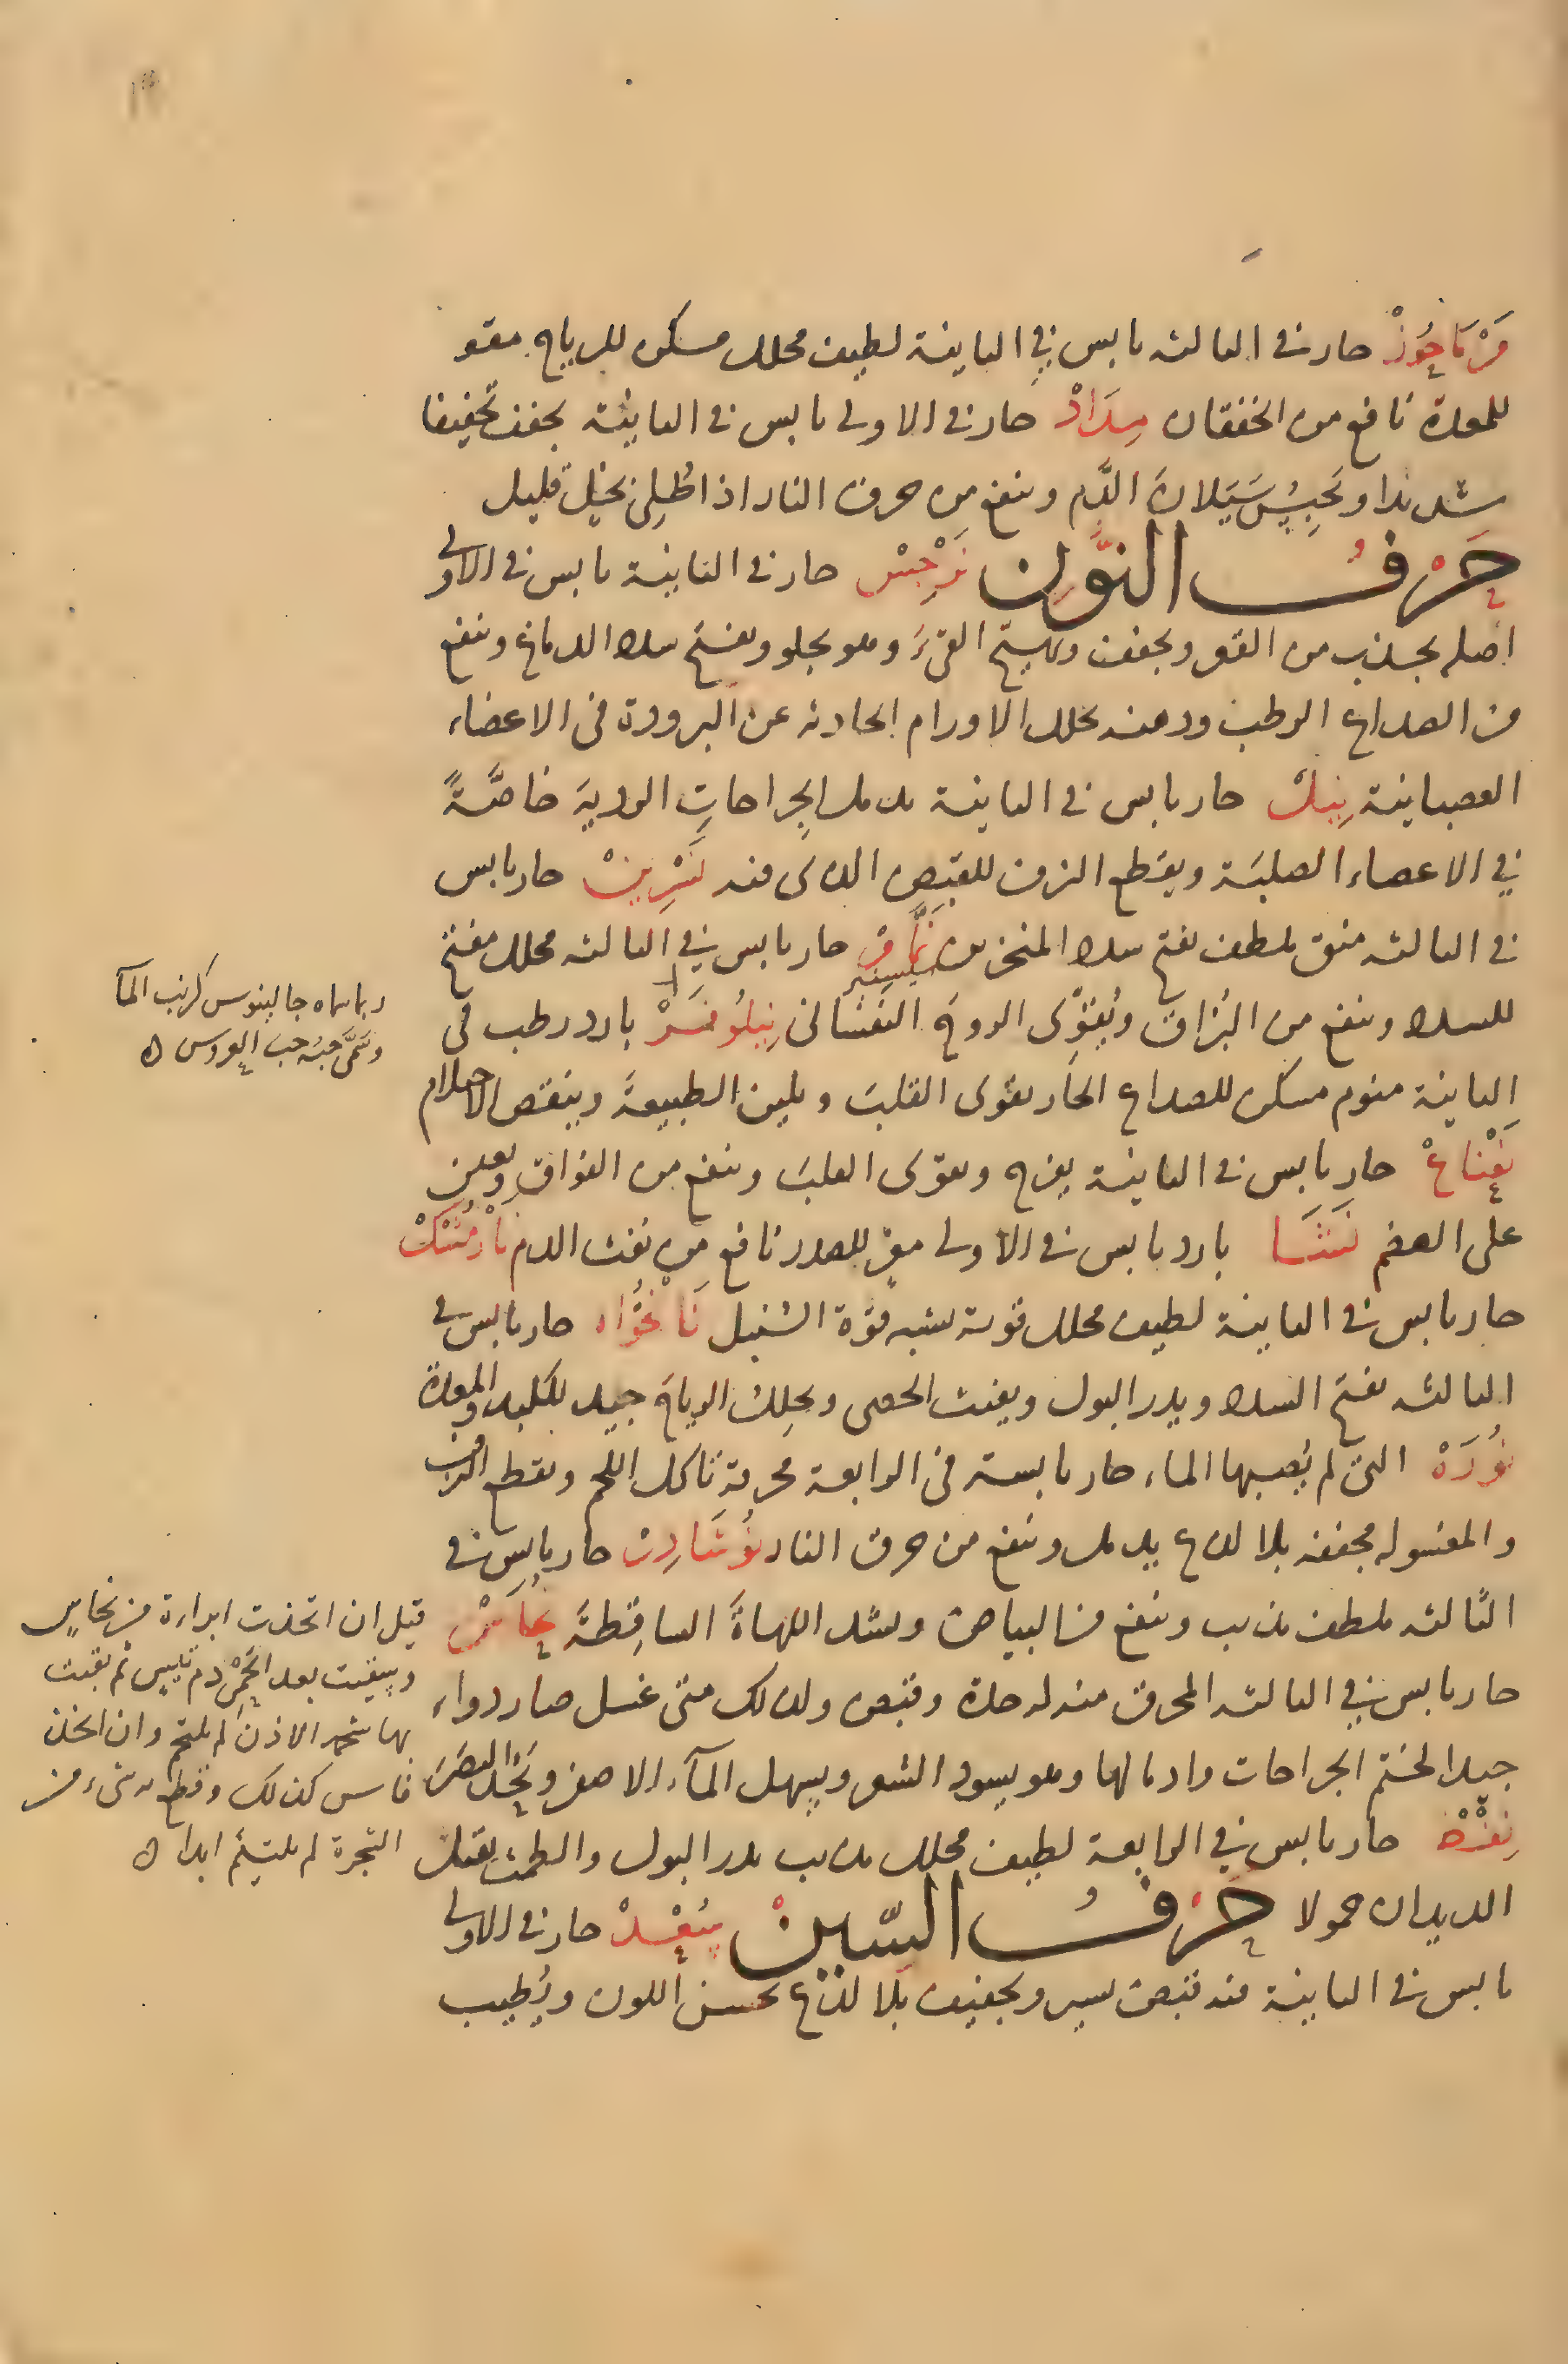 مَرْمَاحُوزْ حار في الثالثة يابس في الثانية لطيف محلل مسكن للرياح مقو
للمعدة نافع من الخفقان مِدَادْ حار في الاولى يابس في الثانية يجفف تجفيفا
شديدا ويَحبِسُ سَيَلانَ الدَّم وينفع من حرق النار اذا طُلِيَ بخلٍّ قليل
حَرْفُ النُّونِ نَرْجِسْ حار في الثانية يابس في الاولى
اصله يجذب من القعر ويجفف ويهيج القيءَ وهو يجلو ويفتح سدد الدماغ وينفع
من الصداع الرطب ودهنه يحلل الاورام الحادثة عن البرودة في الاعضاء
العصبانية نِيلْ حار يابس في الثانية يدمل الجِراحاتِ الرديةَ خاصَّةً
في الاعضاء الصلبَة ويقطع النزف للقبضِ الذي فيه نَسْرِينْ حار يابس
في الثالثة منق ملطف يفتح سدد المنخرين نَمَّامْ حار يابس في الثالثة محلل مفتح
سيسنبر
للسدد وينفع من البُزاق ويُقَوِّي الروحَ النفسَاني نِيلُوفَرْ بارد رطب في
الثانية منوم مسكن للصداع الحار يقوى القلبَ ويلين الطبيعةَ وينقص الاحتلام
نَعْناعْ حار يابس في الثانية يفرح ويقوى القلبَ وينفع من الفواق ويعين
على الهضم نَشَا بارد يابس في الاولى مغرٍ للصدر نافع من نفث الدم نَارْمُشْكْ
حار يابس في الثانية لطيف محلل قوته تشبه قوّة السُنبل نَانْخُوَاه حار يابس في
الثالثة يفتح السدد ويدر البول ويفتت الحصى ويحلل الرياحَ جيد للكبد والمعدة
نُورَهْ التي لم يُصبها الماء حار يابسة في الرابعة محرقة تاكل اللحم وتقطع النزف
والمغسوله مجففة بلا لذع يدمل وينفع من حرق النار نُوشَادِرْ حار يابس في
الثالثه ملطف مذيب وينفع من البياض ويشد اللهاةَ الساقِطةَ نُحَاسْ
حار يابس في الثالثه المحرق منه له حدة وقبض ولذلك متى غسل صار دواء
جيدا لختم الجراحات وادمالها وهو يسود الشعر ويسهل المآء الاصفر ويُحِدُّ البصَرَ
نِفْطْ حار يابس في الرابعة لطيف محلل مذيب يدر البول والطمث يقتل
الديدان حمولا حَرْفُ السّينْ سُعْدْ حار في الاولى
يابس في الثانية فيه قبض يسير وتجفيف بلا لذع يحسن اللون ويُطيب
وربما سماه جالينوس كرنب المآ
وسَمَّى حبَّه حب العروس
قيل ان اتخذت ابرة من نحاسٍ
وسقيت بعد الحَمْى دم تيس ثم ثقبت
بها شحمة الاذن لم يلتحم وان اتخذ
فاس كذلك وقطع به شيء من
الشجرة لم يلتئم ابدا